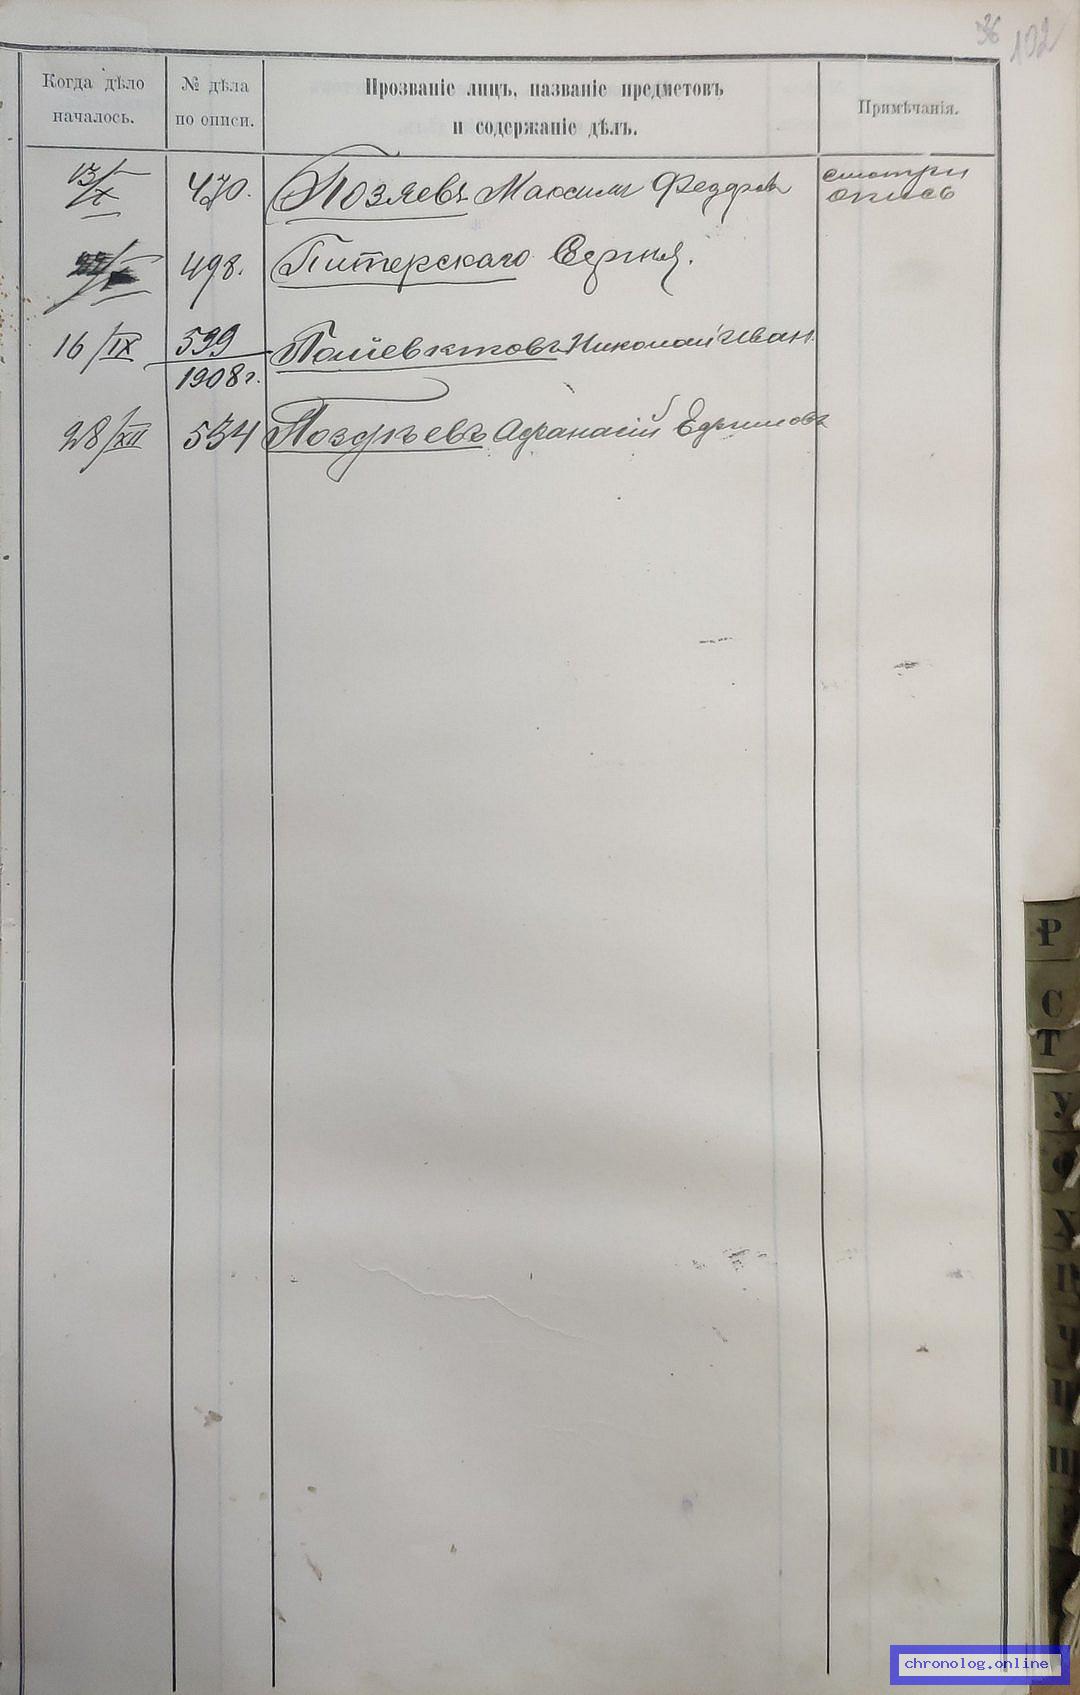 36 102
Когда дѣло началось.
№ дѣла по описи.
Прозваніе лицъ, названіе предметовъ
и содержаніе дѣлъ.
Примѣчанія.
13/X 470. Позяевъ Максимъ Федоров смотри
опись
498. Питерскаго Сергѣя.
16/IX 599 Полiевктовъ Николай Иван.
1908 г.
28/XII 534 Поздѣевъ Афанасій Ефимовъ
Р
С
Т
У
Ф
Х
Ч
Ш
chronolog.online